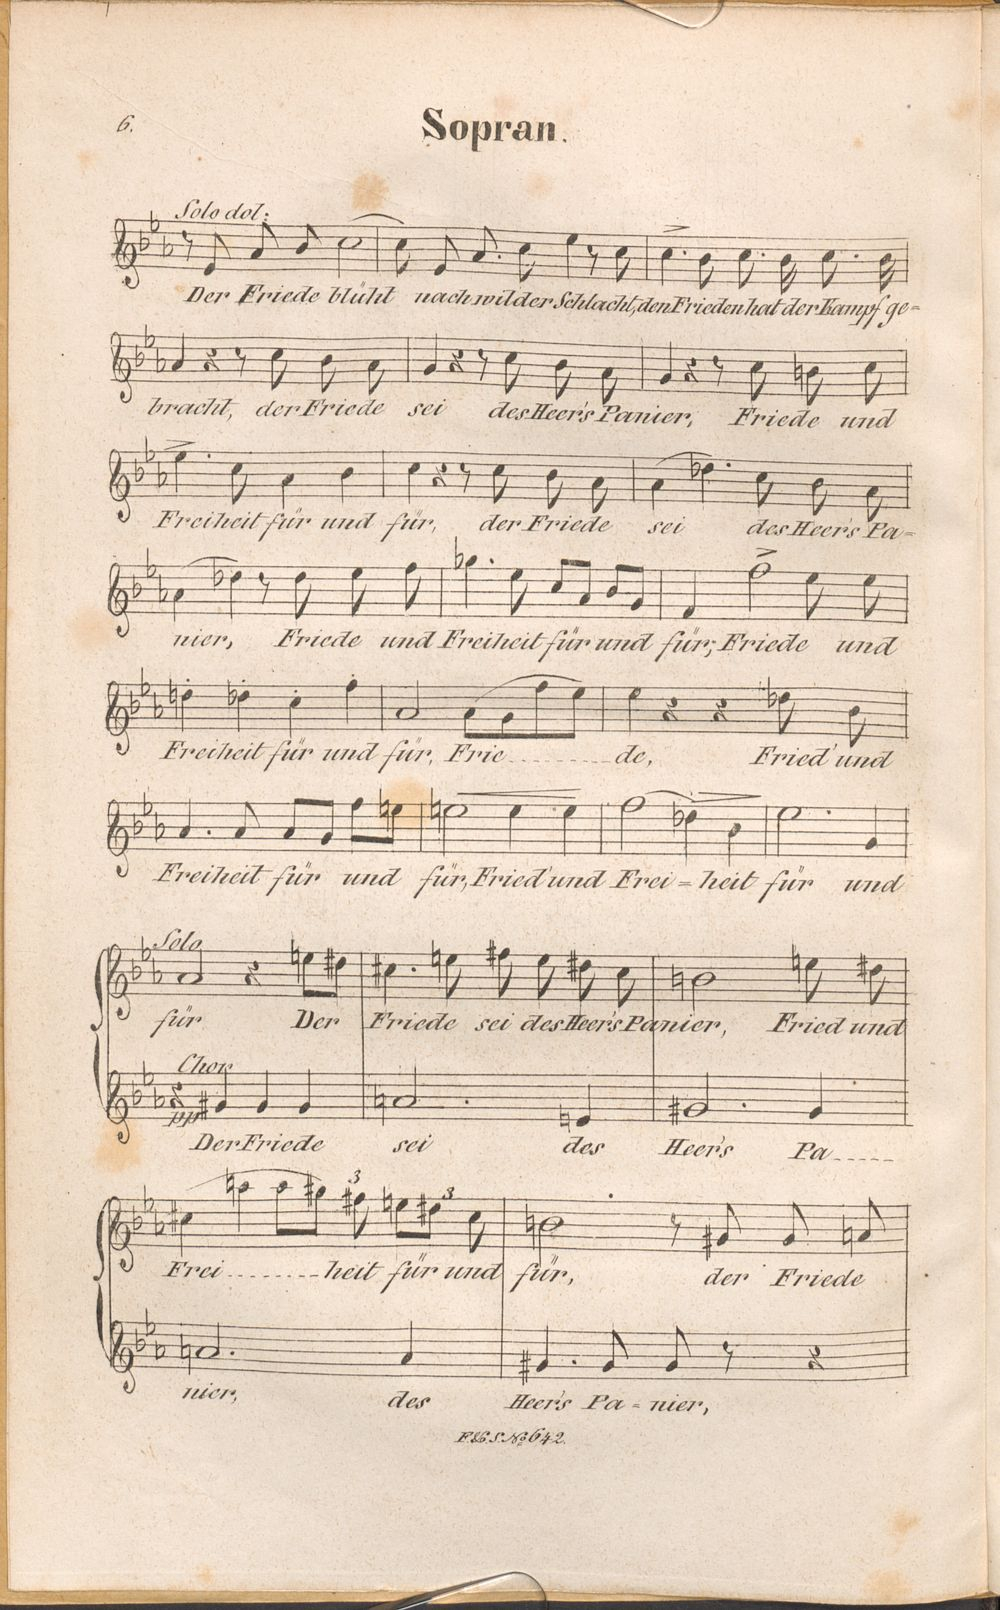 6.
Sopran.
Solo dol:
Der Friede blüht nach wilder Schlacht, den Frieden hat der Kampf ge=
bracht, der Friede sei des Heer's Panier, Friede und
Freiheit für und für, der Friede sei des Heer's Pa=
nier, Friede und Freiheit für und für, Friede und
Freiheit für und für, Frie.........de, Fried' und
Freiheit für und für, Fried' und Frei=heit für und
Solo
für Der Friede sei des Heer's Panier, Fried und
Chor
pp
Der Friede sei des Heer's Pa.....
3 3
Frei.........heit für und für, der Friede
nier, des Heer's Pa=nier,
F.&S. No 642.